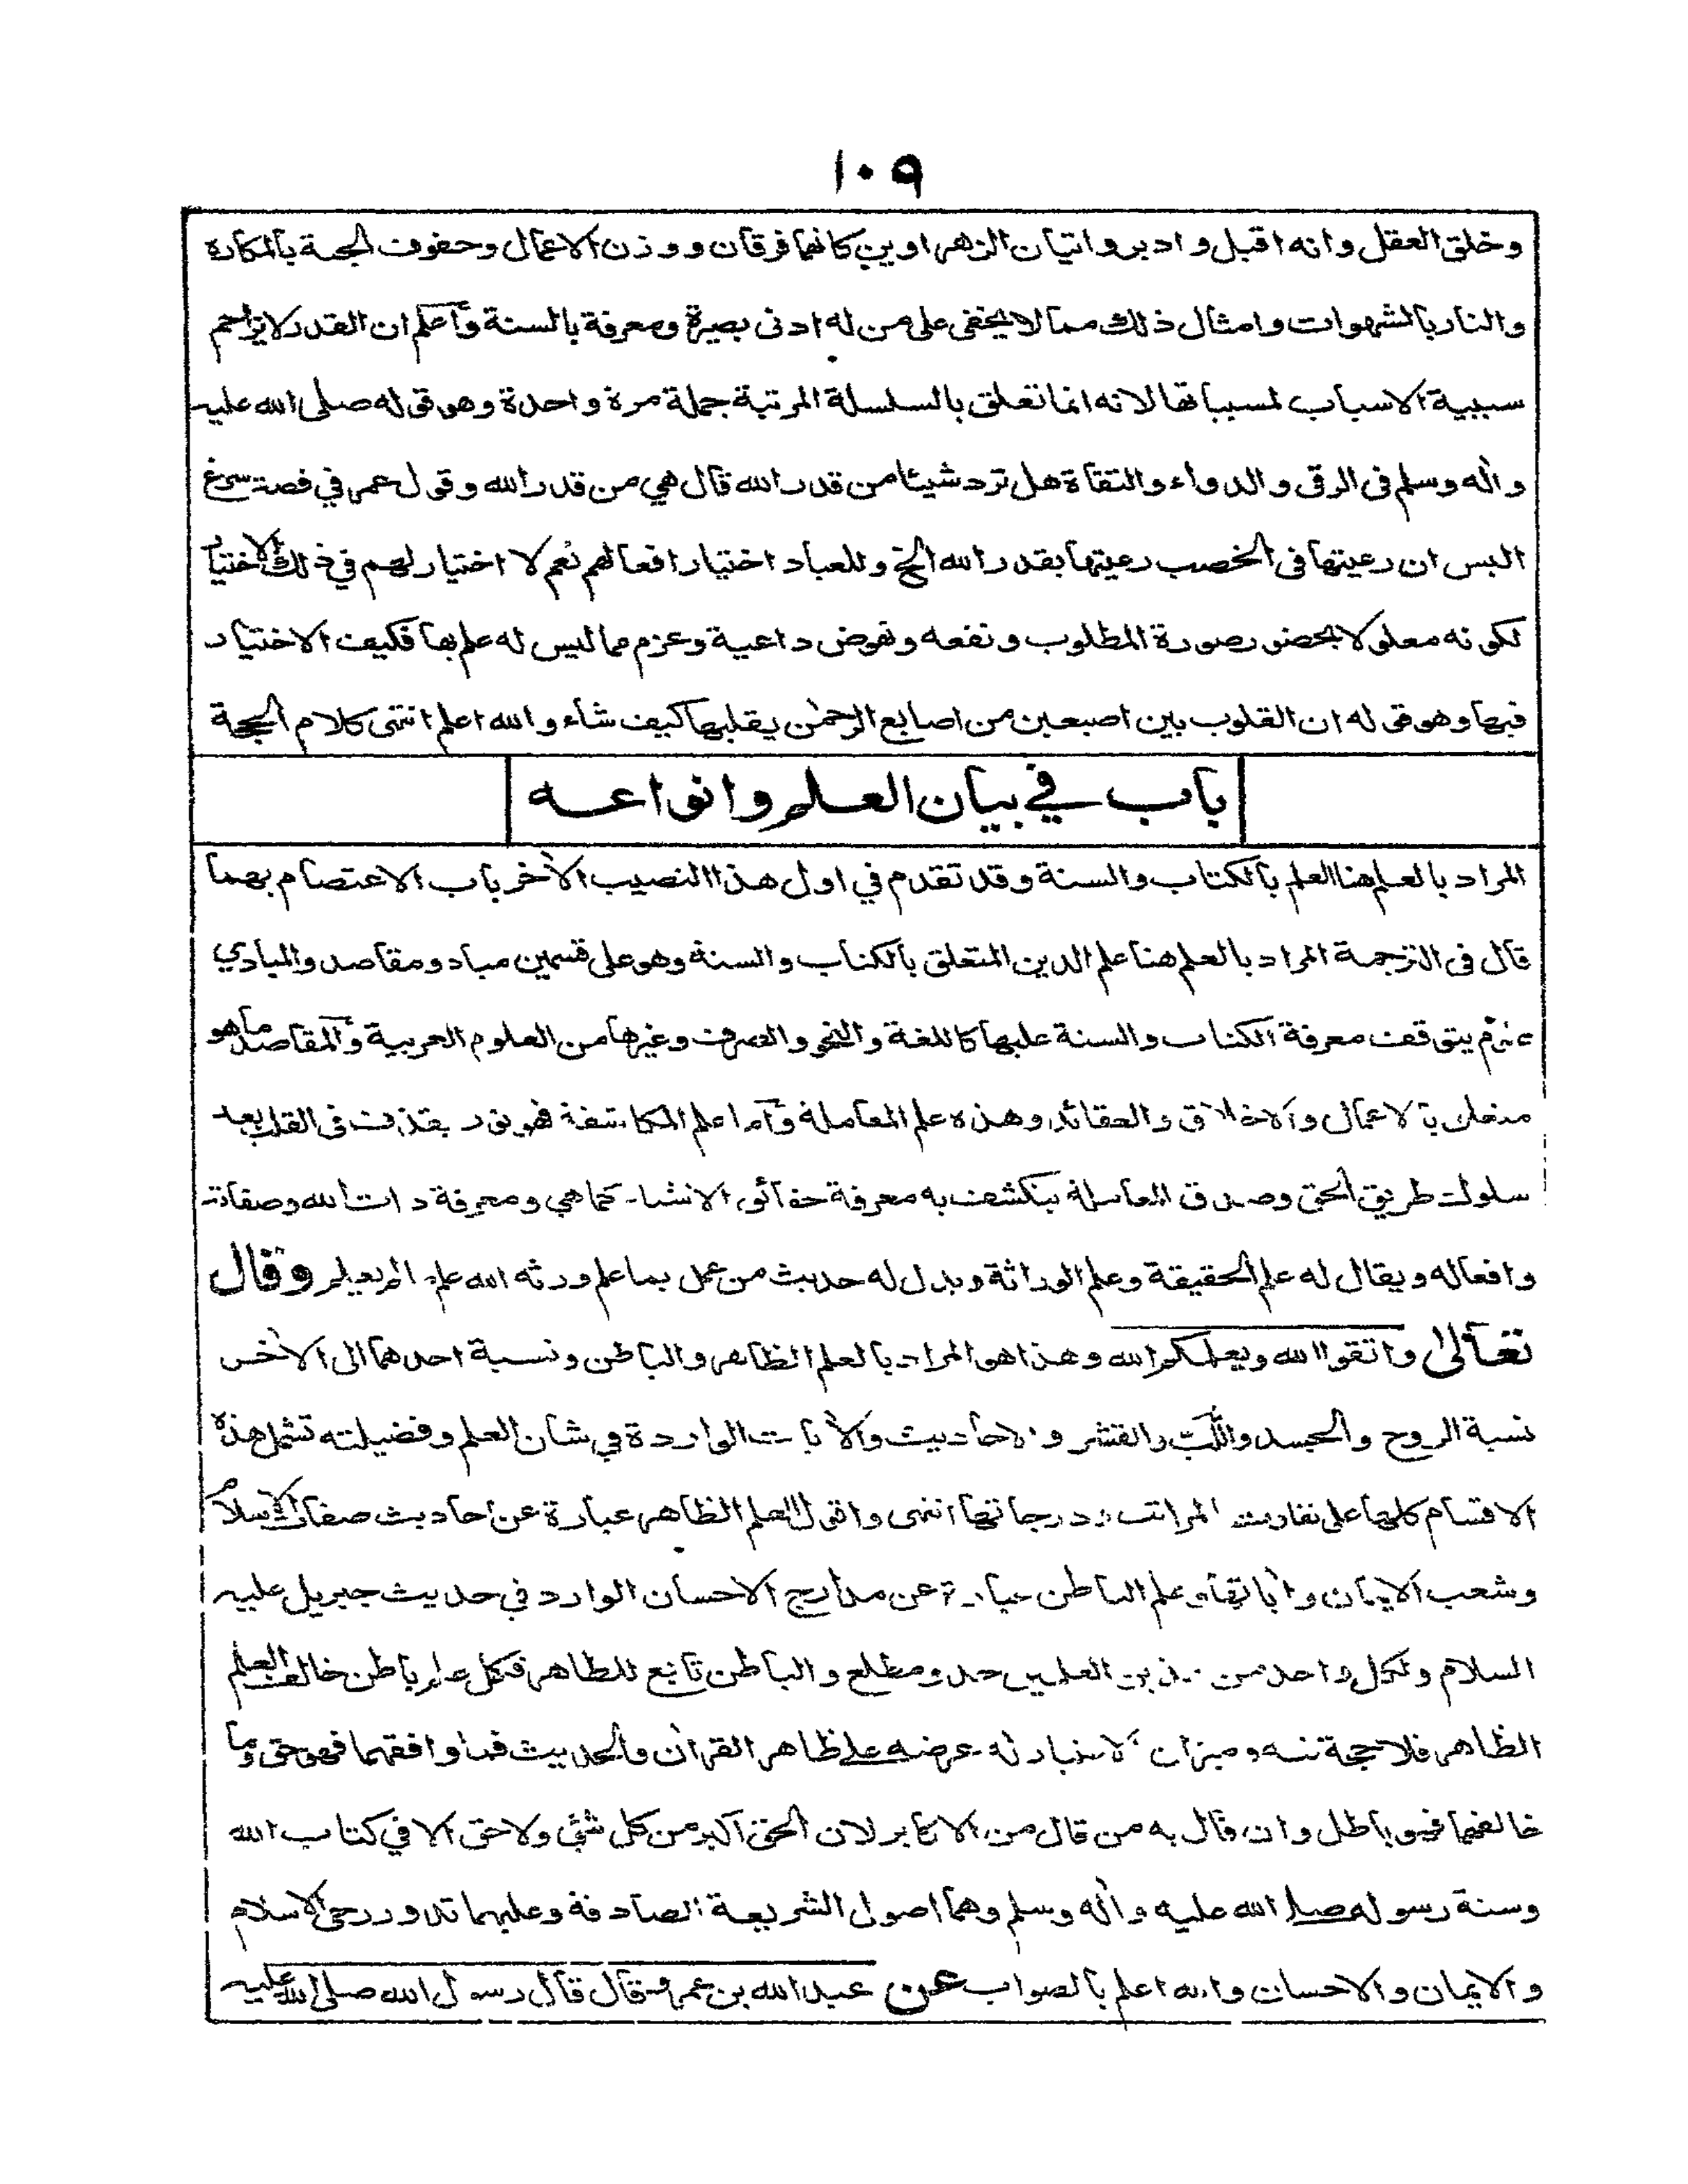 ١٠٩
وخلق العقل وانه اقبل وادبر واتيان الزهراوين كانهما فرقان ووزن الاعمال وحفوف الجنة بالمكاره
والنار بالشهوات وامثال ذلك مما لا يخفى على من له ادنى بصيرة ومعرفة بالسنة واعلم ان القدر لا يزاحم
سببية الاسباب لمسبباتها لانه انما تعلق بالسلسلة المرتبة جملة مرة واحدة وهو قوله صلى الله عليه
واله وسلم فى الرقى والدواء والتقاة هل ترد شيئا من قدر الله قال هي من قدر الله وقول عمر في قصة سرغ
اليس ان رعيتها فى الخصب رعيتها بقدر الله الخ وللعباد اختيار افعالهم نعم لا اختيار لهم في ذلك الاختيار
لكونه معلولا بحضور صورة المطلوب ونفعه ونهوض داعية وعزم مما ليس له علم بها فكيف الاختيار
فيها وهو قوله ان القلوب بين اصبعين من اصابع الرحمن يقلبها كيف شاء والله اعلم انتهى كلام الحجة
باب في بيان العلم وانواعه
المراد بالعلم هنا العلم بالكتاب والسنة وقد تقدم في اول هذا النصيب الأخر باب الاعتصام بهما
قال فى الترجمة المراد بالعلم هنا علم الدين المتعلق بالكتاب والسنة وهو على قسمين مباد ومقاصد والمبادي
يتوقف معرفة الكتاب والسنة عليها كاللغة والنحو والصرف وغيرها من العلوم العربية والمقاصد ما هو
متعلق بالاعمال والاخلاق والعقائد وهذه علم المعاملة واما علم المكاشفة فهو نور يقذف فى القلب بعد
سلوك طريق الحق وصدق المعاملة ينكشف به معرفة حقائق الاشياء كما هي ومعرفة ذات الله وصفاته
وافعاله ويقال له علم الحقيقة وعلم الوراثة ويدل له حديث من عمل بما علم ورثه الله علم ما لم يعلم وقال
تعالى واتقوا الله ويعلمكم الله وهذا هو المراد بالعلم الظاهر والباطن ونسبة احدهما الى الأخر
نسبة الروح والجسد واللب والقشر والاحاديث والأيات الواردة في شان العلم وفضيلته تشمل هذه
الاقسام كلها على تفاوت المراتب ودرجاتها انتهى واقول العلم الظاهر عبارة عن احاديث صفات الاسلام
وشعب الايمان وأياتها وعلم الباطن عبارة عن مدارج الاحسان الوارد في حديث جبريل عليه
السلام ولكل واحد من هذين العلمين حد ومطلع والباطن تابع للظاهر فكل علم باطن خالف العلم
الظاهر فلا حجة فيه وميزان الاختبار له عرضه على ظاهر القرأن والحديث فما وافقهما فهو حق وما
خالفهما فهو باطل وان قال به من قال من الاكابر لان الحق اكبر من كل شئ ولا حق الا في كتاب الله
وسنة رسوله صلى الله عليه وأله وسلم وهما اصول الشريعة الصادقة وعليهما تدور رحى الاسلام
والايمان والاحسان والله اعلم بالصواب عن عبد الله بن عمرو قال قال رسول الله صلى الله عليه